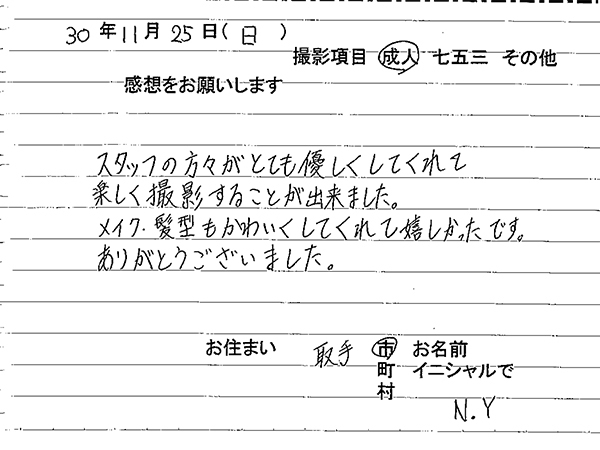 30年11月25日(日)
撮影項目 成人 七五三 その他
感想をお願いします
スタッフの方々がとても優しくしてくれて
楽しく撮影することが出来ました。
メイク・髪型もかわいくしてくれて嬉しかったです。
ありがとうございました。
お住まい 取手 市 お名前
町 イニシャルで
村
N.Y